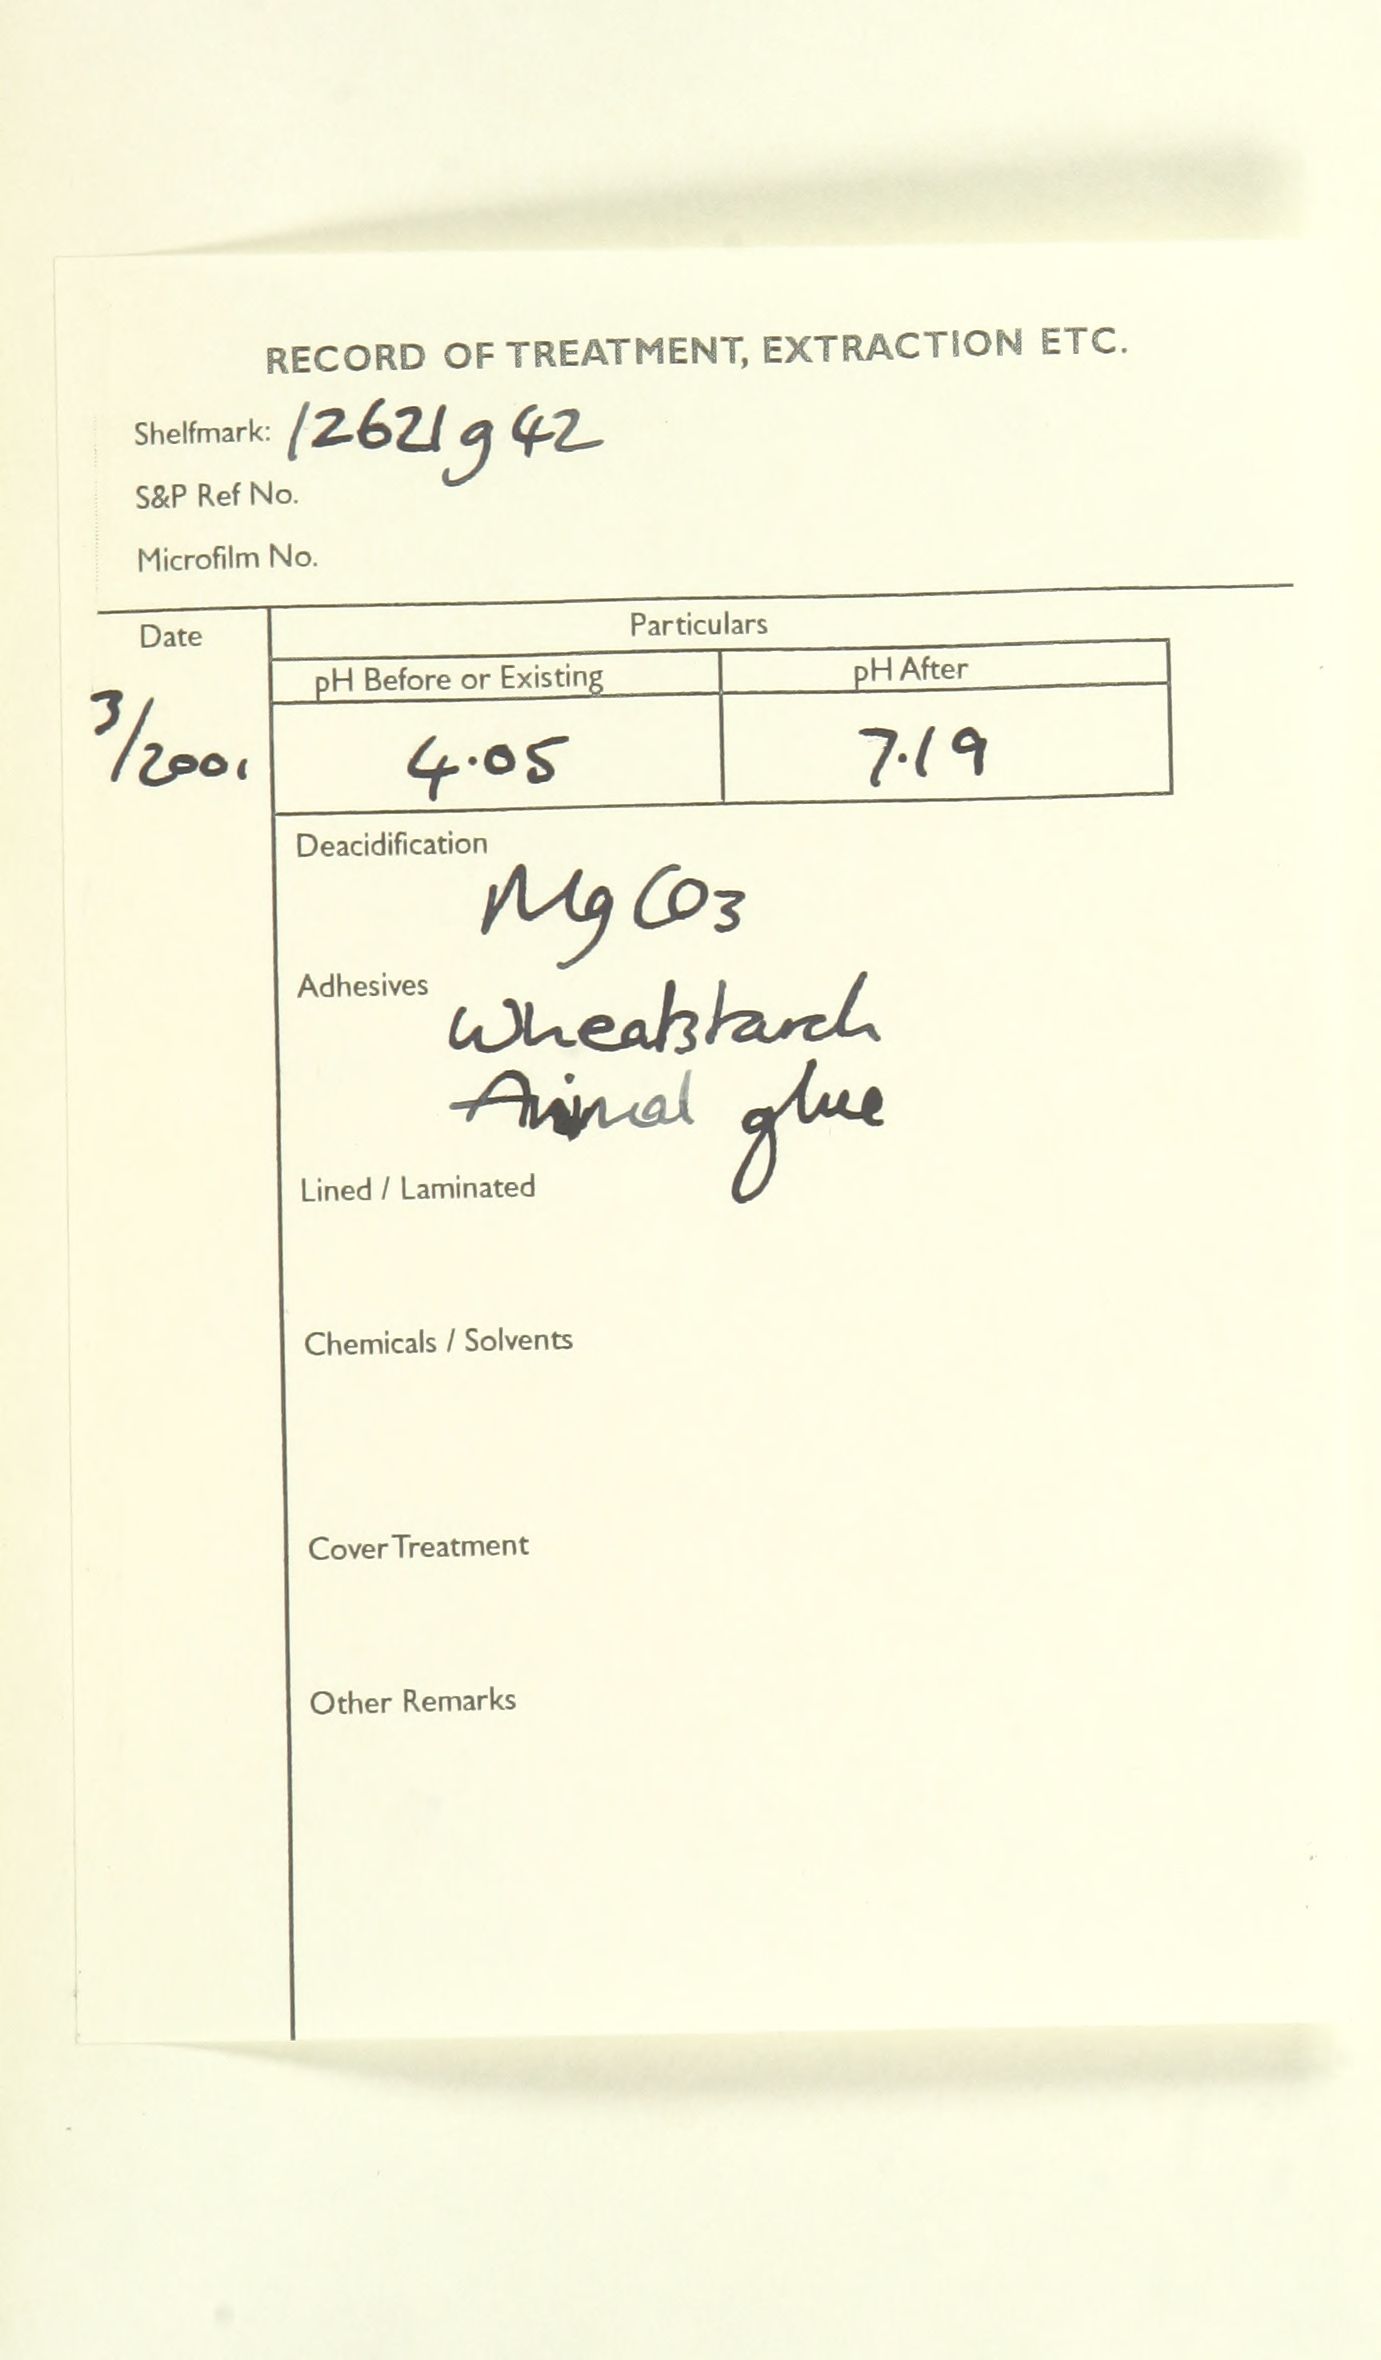 RECORD OF TREATMENT, EXTRACTION ETC.
Shelfmark: 12621 g 42
S&P Ref No.
Microfilm No.
Date
Particulars
pH Before or Existing
pH After
3/2001
4.05
7.19
Deacidification
MgCO3
Adhesives
Wheatstarch
Animal glue
Lined / Laminated
Chemicals / Solvents
Cover Treatment
Other Remarks